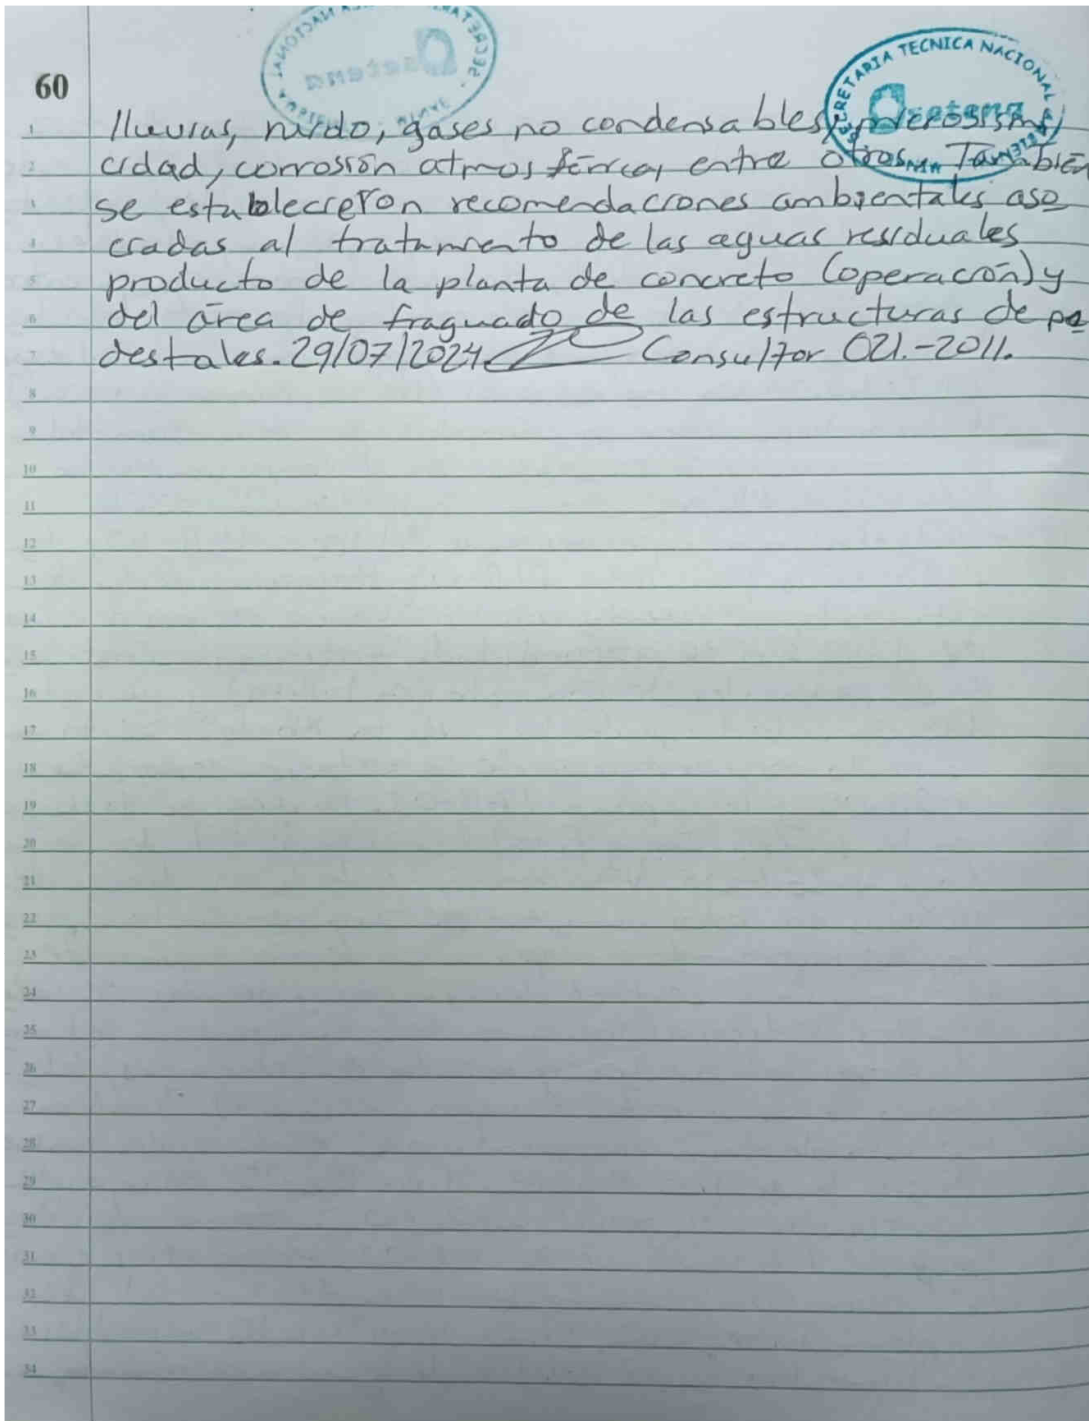 60
SECRETARIA TECNICA NACIONAL
setena
1 lluvias, ruido, gases no condensables, microsismi
2 cidad, corrosión atmosférica, entre otros. También
3 se establecieron recomendaciones ambientales aso
4 ciadas al tratamiento de las aguas residuales
5 producto de la planta de concreto (operación) y
6 del área de fraguado de las estructuras de pe
7 destales. 29/07/2024 Consultor 021.-2011.
8
9
10
11
12
13
14
15
16
17
18
19
20
21
22
23
24
25
26
27
28
29
30
31
32
33
34